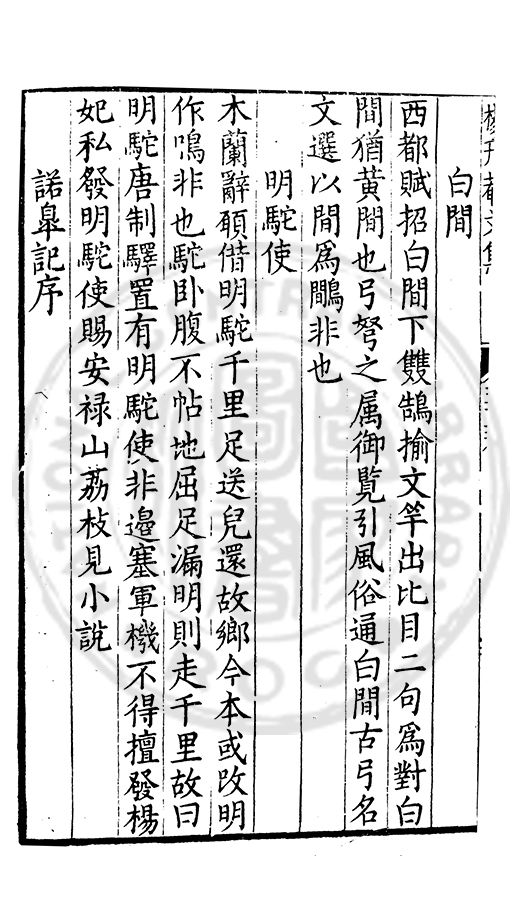 白閒
西都賦招白閒下雙鵠揄文竿出比目二句爲對白
閒猶黃閒也弓弩之属御覧引風俗通白閒古弓名
文選以閒爲鷴非也
明駝使
木蘭辭願借明駝千里足送兒還故鄉今本或改明
作鳴非也駝卧腹不帖地屈足漏明則走千里故曰
明駝唐制驛置有明駝使非邉塞軍機不得擅發楊
妃私發明駝使賜安禄山荔枝見小說
諾臯記序